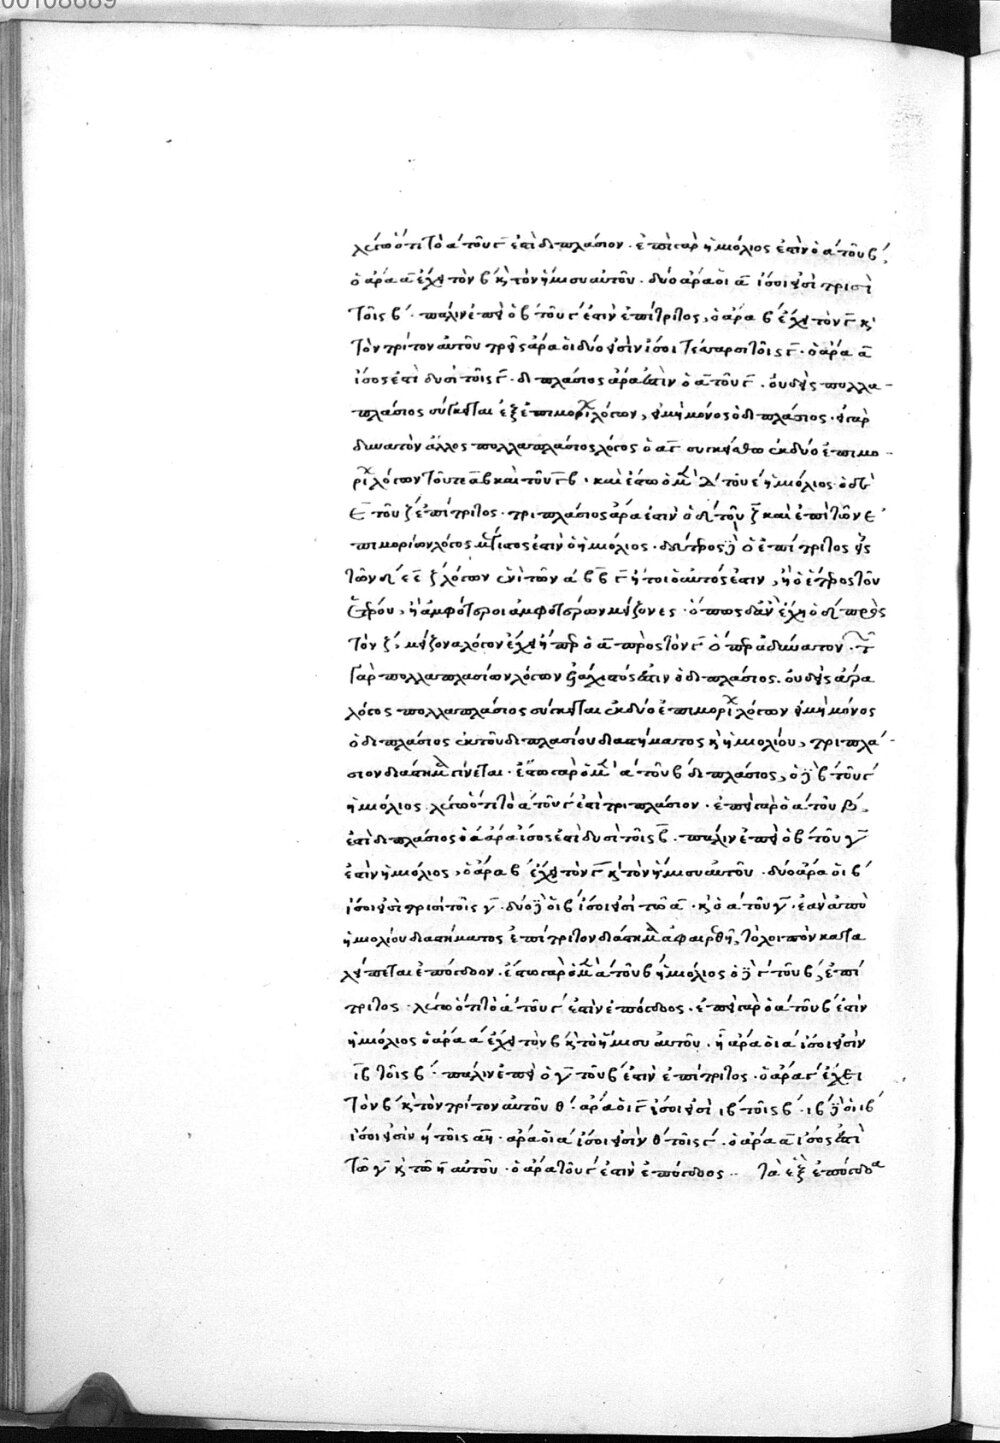 00108689
λέγω ὅτι τὸ α´ τοῦ γ ἐστὶ διπλάσιον · ἐπεὶ γὰρ ἡμιόλιος ἐστὶν ὁ α´ τοῦ β´,
ὁ ἄρα α ἔχει τὸν β κ̀ τὸν ἥμισυ αὐτοῦ · δύο ἄρα οἱ α ἴσοι εἰσὶ τρισὶ
τοῖς β´ · πάλιν ἐπεὶ ὁ β´ τοῦ γ´ ἐστὶν ἐπίτριτος, ὁ ἄρα β´ ἔχει τὸν γ κ̀
τὸν τρίτον αὐτοῦ τρεῖς ἄρα οἱ δύο εἰσὶν ἴσοι τέσσαρσι τοῖς γ · ὁ ἄρα α
ἴσος ἐστὶ δυσὶ τοῖς γ · διπλάσιος ἄρα ἐστὶν ὁ α τοῦ γ · οὐδεὶς πολλα-
πλάσιος σύγκειται ἐξ ἐπιμορίχ λόγων, εἰ μὴ μόνος ὁ διπλάσιος · εἰ γὰρ
δυνατὸν ἄλλος πολλαπλάσιος λόγος ὁ αγ συγκείσθω ἐκ δύο ἐπιμο-
ρίχ λόγων τοῦτε αβ καὶ τοῦ γβ · καὶ ἔστω ὁ μ δ´ τοῦ ε´ ἡμιόλιος ὁ δὲ
ε τοῦ ζ ἐπίτριτος · τριπλάσιος ἄρα ἐστὶν ὁ δ τοῦ ζ καὶ ἐπὶ τῶν ἐ
πιμορίων λόγος μέγιστος ἐστὶν ὁ ἡμιόλιος · δεύτερος δὲ ὁ ἐπίτριτος εἷς
τῶν δ´ ε ε ζ λόγων ἑνὶ τῶν α´ β β γ ἤτοι ὁ αὐτός ἐστιν, ἢ ὁ ἕτερος τοῦ
ἑτέρου, ἢ ἀμφότεροι ἀμφοτέρων μείζονες · ὅπως δ᾽ ἂν ἔχῃ ὁ δ´ πρὸς
τὸν ζ, μείζονα λόγον ἔχει ἤπερ ὁ α πρὸς τὸν γ ὅπερ ἀδύνατον · τ
γὰρ πολλαπλασίων λόγων ἐλάχιστός ἐστιν ὁ διπλάσιος. οὐδεὶς ἄρα
λόγος πολλαπλάσιος σύγκειται ἐκ δύο ἐπιμορίχ λόγων εἰ μὴ μόνος
ὁ διπλάσιος ἐκ τοῦ διπλασίου διαστήματος κ̀ ἡμιολίου, τριπλά-
σιον διάστημα γίνεται · ἔστω γὰρ ὁ μ α´ τοῦ β διπλάσιος, ὁ δὲ β´ τοῦ γ´
ἡμιόλιος λέγω ὅτι τὸ α´ τοῦ γ´ ἐστὶ τριπλάσιον · ἐπεὶ γὰρ ὁ α´ τοῦ β´,
ἐστὶ διπλάσιος ὁ α ἄρα ἴσος ἐστὶ δυσὶ τοῖς β · πάλιν ἐπεὶ ὁ β´ τοῦ γ
ἐστὶν ἡμιόλιος, ὁ ἄρα β´ ἔχει τὸν γ κ̀ τὸν ἥμισυ αὐτοῦ · δύο ἄρα οἱ β´
ἴσοι εἰσὶ τρισὶ τοῖς γ · δύο δὲ οἱ β ἴσοι εἰσὶ τῶ α · κ̀ ὁ α τοῦ γ · ἐὰν ἀπὸ
ἡμιολίου διαστήματος ἐπίτριτον διάστημα ἀφαιρεθῇ, τὸ λοιπὸν καται
λείπεται ἐπόγδοον · ἔστω γὰρ ὁ μ α τοῦ β ἡμιόλιος ὁ δὲ γ´ τοῦ β´, ἐπί
τριτος · λέγω ὅτι τὸ α´ τοῦ γ´ ἐστὶν ἐπόγδοος · ἐπεὶ γὰρ ὁ α´ τοῦ β´ ἐστὶν
ἡμιόλιος ὁ ἄρα α´ ἔχει τὸν β κ̀ τὸ ἥμισυ αὐτοῦ · η ἄρα οἱ α´ ἴσοι εἰσὶν
ιβ τοῖς β´ · πάλιν ἐπεὶ ὁ γ τοῦ β´ ἐστὶν ἐπίτριτος · ὁ ἄρα γ´ ἔχει
τὸν β´ κ̀ τὸν τρίτον αὐτοῦ θ´ · ἄρα οἱ γ ἴσοι εἰσὶ ιβ τοῖς β´ · ιβ δὲ οἱ β´
ἴσοι εἰσὶν η τοῖς αη · ἄρα οἱ α´ ἴσοι εἰσὶν θ´ τοῖς γ´ · ὁ ἄρα α ἴσος ἐστὶ
τῶ γ κ̀ τῶ η αὐτοῦ · ὁ ἄρα τοῦ γ´ ἐστὶν ἐπόγδοος ·· τὰ ἓξ ἐπόγδοα